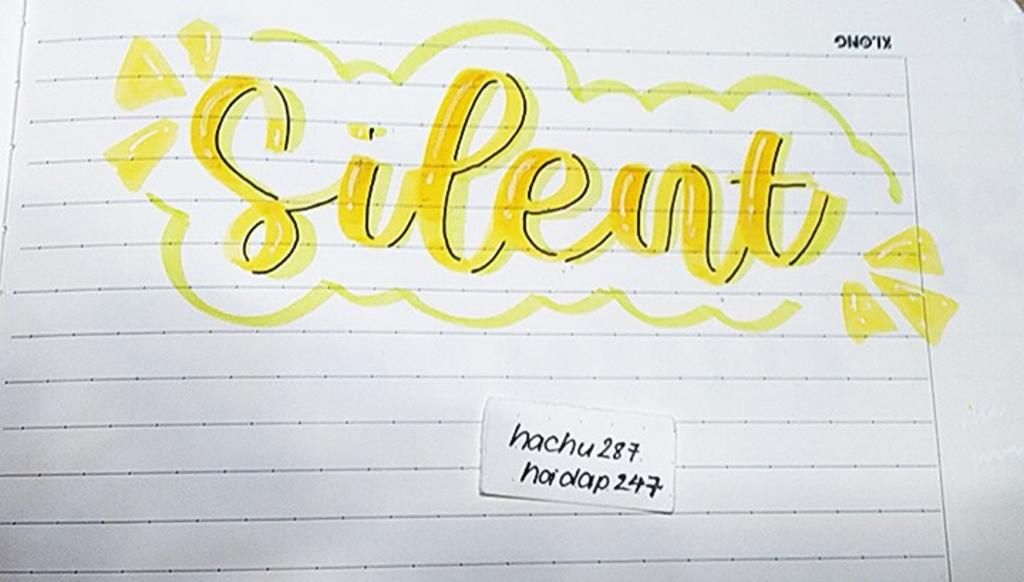 KLONG
Silent
hachu287
hoidap247